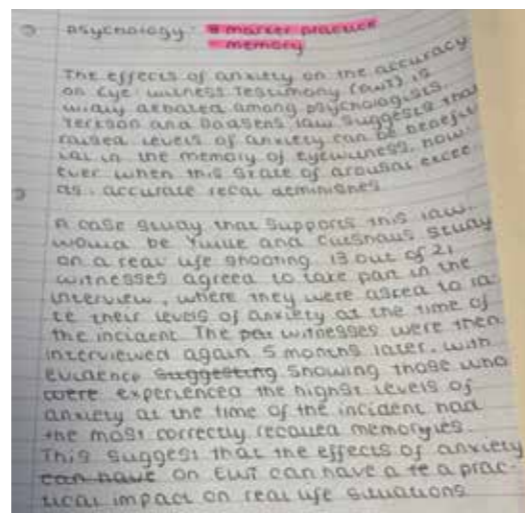 psychology: 8 marker practice
memory
The effects of anxiety on the accuracy
on Eye witness Testimony (EWT) is
widly debated among psychologists
Yerkson and Doasens law suggests that
raised levels of anxiety can be benefit
ial in the memory of eyewitness, how-
ever when this state of arousal excee
ds, accurate recal deminishes
A case study that supports this law
would be Yuille and Cutshaus study
on a real life shooting. 13 out of 21
witnesses agreed to take part in the
interview, where they were asked to ra
te their levels of anxiety at the time of
the incident. The witnesses were then
interviewed again 5 months later, with
evidence suggesting showing those who
were experienced the highst levels of
anxiety at the time of the incident had
the most correctly recalled memoryies.
This suggest that the effects of anxiety
can have on EWT can have a prac-
tical impact on real life situations